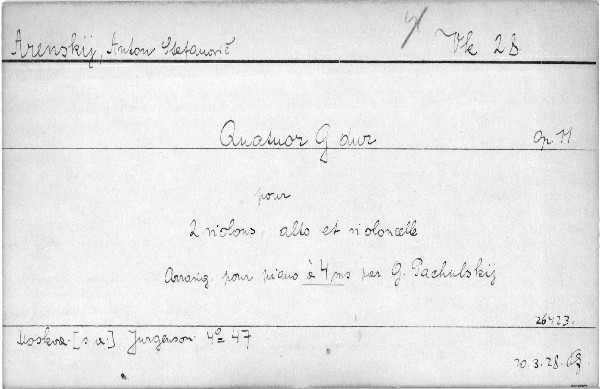 Arenskij, Anton Stefanovič Vk 28
Quatuor G dur Op. 11
pour
2 violons, alto et violoncelle
Arrang. pour piano à 4 ms par G. Pachulskij
26423.
Moskva [s. a.] Jurgenson 4º 47
20.3.28.